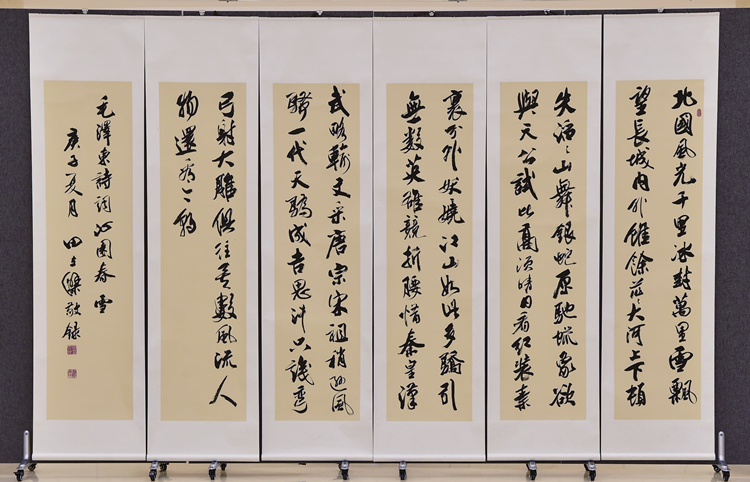 北國風光千里冰封萬里雪飄
望長城内外惟餘莽〻大河上下頓
失滔〻山舞銀蛇原馳蠟象欲
與天公試比高須晴日看紅裝素
裹分外妖嬈江山如此多嬌引
無數英雄競折腰惜秦皇漢
武略輸文采唐宗宋祖稍遜風
騷一代天驕成吉思汗只識彎
弓射大雕俱往矣數風流人
物還看今朝
毛澤東詩詞沁園春雪
庚子夏月 田 敬錄